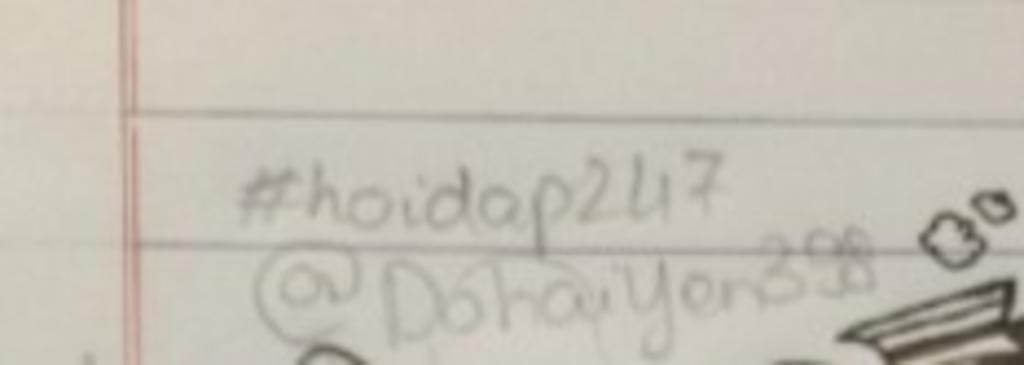 #hoidap247
@DohaiYen398